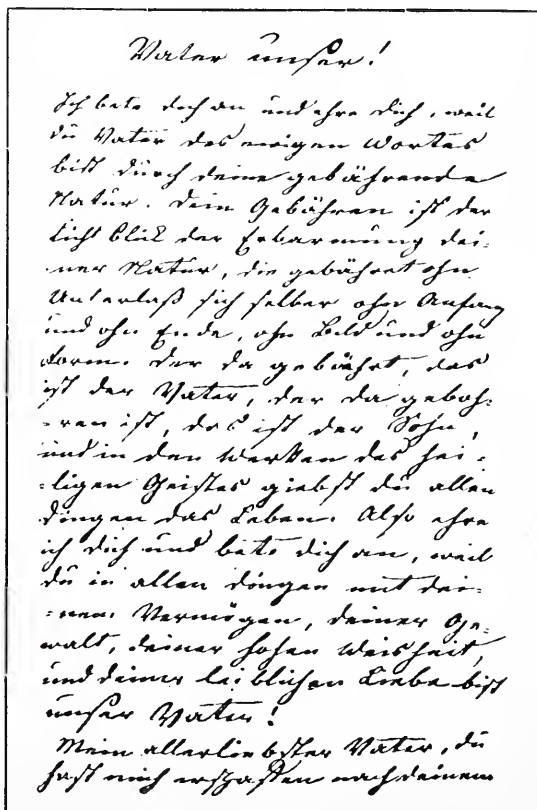 Vater unser!
Ich bete dich an und ehre dich, weil
du Vater des ewigen Wortes
bist durch deine gebährende
Natur. Dein Gebähren ist der
licht Blick der Erbarmung dei-
ner Natur, die gebähret ohn
Unterlaß sich selber ohn Anfang
und ohn Ende, ohn Bild und ohn
Form. Der da gebährt, das
ist der Vater, der da geboh-
-ren ist, das ist der Sohn,
und in den Werken des hei-
-ligen Geistes giebst du allen
Dingen das Leben. Also ehre
ich dich und bete dich an, weil
du in allen Dingen mit dei-
-nem Vermögen, deiner Ge-
walt, deiner hohen Weisheit,
und deiner leiblichen Liebe bist
unser Vater!
Mein allerliebster Vater, du
hast mich erschaffen nach deinem